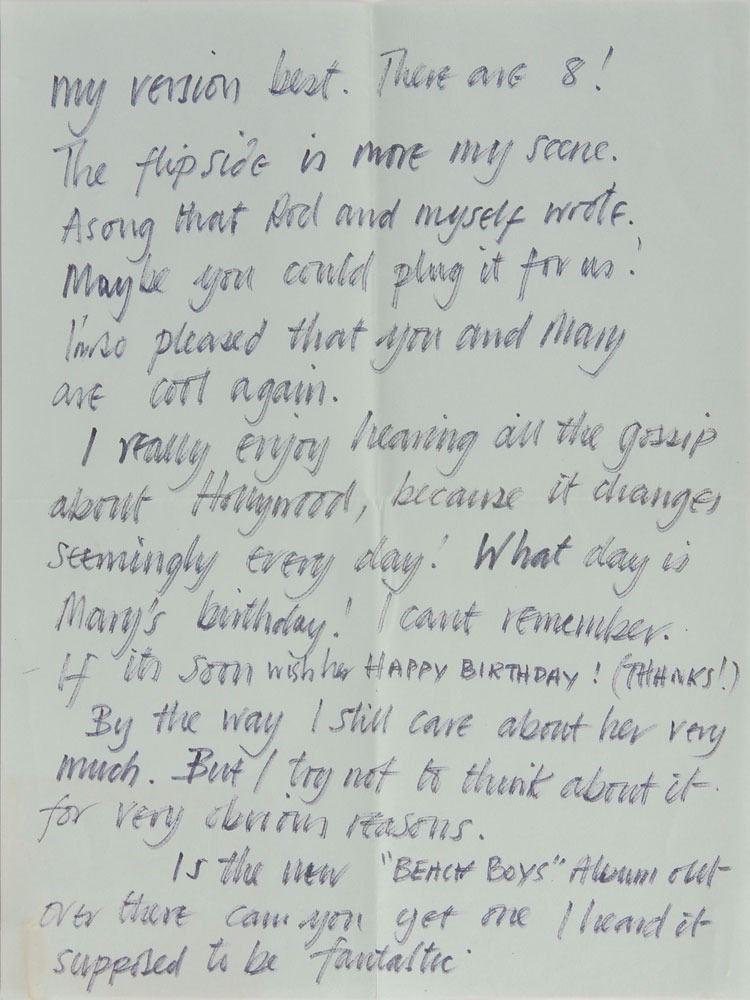 my version best. There are 8!
The flipside is more my scene.
A song that Rod and myself wrote.
Maybe you could plug it for us!
I'm so pleased that you and Mary
are cool again.
I really enjoy hearing all the gossip
about Hollywood, because it changes
seemingly every day! What day is
Mary's birthday! I cant remember.
If its soon wish her HAPPY BIRTHDAY! (THANKS!)
By the way I still care about her very
much. But I try not to think about it
for very obvious reasons.
Is the new "BEACH BOYS" Album out
over there can you get one I heard it
supposed to be fantastic.